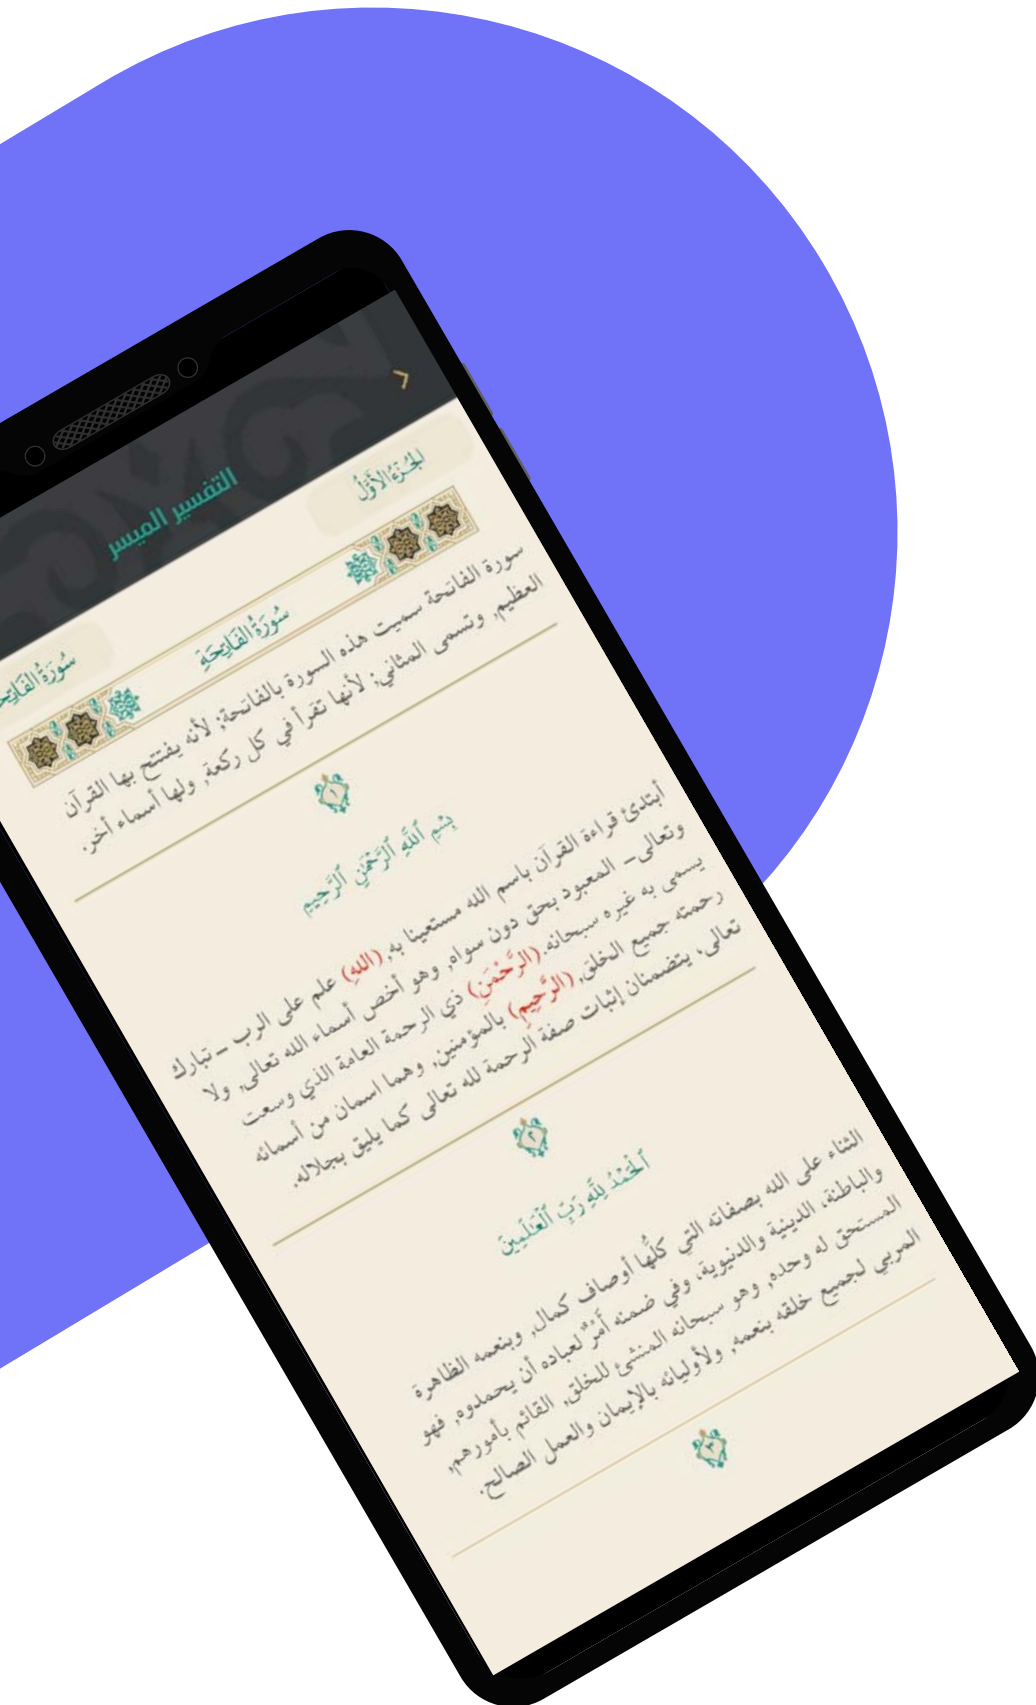 التفسير الميسر
الجُزْءُ الأَوَّلُ
سُورَةُ الفَاتِحَةِ
سُورَةُ الفَاتِحَةِ
سورة الفاتحة سميت هذه السورة بالفاتحة; لأنه يفتتح بها القرآن
العظيم, وتسمى المثاني; لأنها تقرأ في كل ركعة, ولها أسماء أخر.
١
بِسۡمِ ٱللَّهِ ٱلرَّحۡمَٰنِ ٱلرَّحِيمِ
أبتدئ قراءة القرآن باسم الله مستعينا به, (اللهِ) علم على الرب - تبارك
وتعالى- المعبود بحق دون سواه, وهو أخص أسماء الله تعالى, ولا
يسمى به غيره سبحانه. (الرَّحْمَنِ) ذي الرحمة العامة الذي وسعت
رحمته جميع الخلق, (الرَّحِيمِ) بالمؤمنين, وهما اسمان من أسمائه
تعالى، يتضمنان إثبات صفة الرحمة لله تعالى كما يليق بجلاله.
٢
ٱلۡحَمۡدُ لِلَّهِ رَبِّ ٱلۡعَٰلَمِينَ
الثناء على الله بصفاته التي كلُّها أوصاف كمال, وبنعمه الظاهرة
والباطنة، الدينية والدنيوية، وفي ضمنه أَمْرٌ لعباده أن يحمدوه, فهو
المستحق له وحده, وهو سبحانه المنشئ للخلق, القائم بأمورهم,
المربي لجميع خلقه بنعمه, ولأوليائه بالإيمان والعمل الصالح.
٣